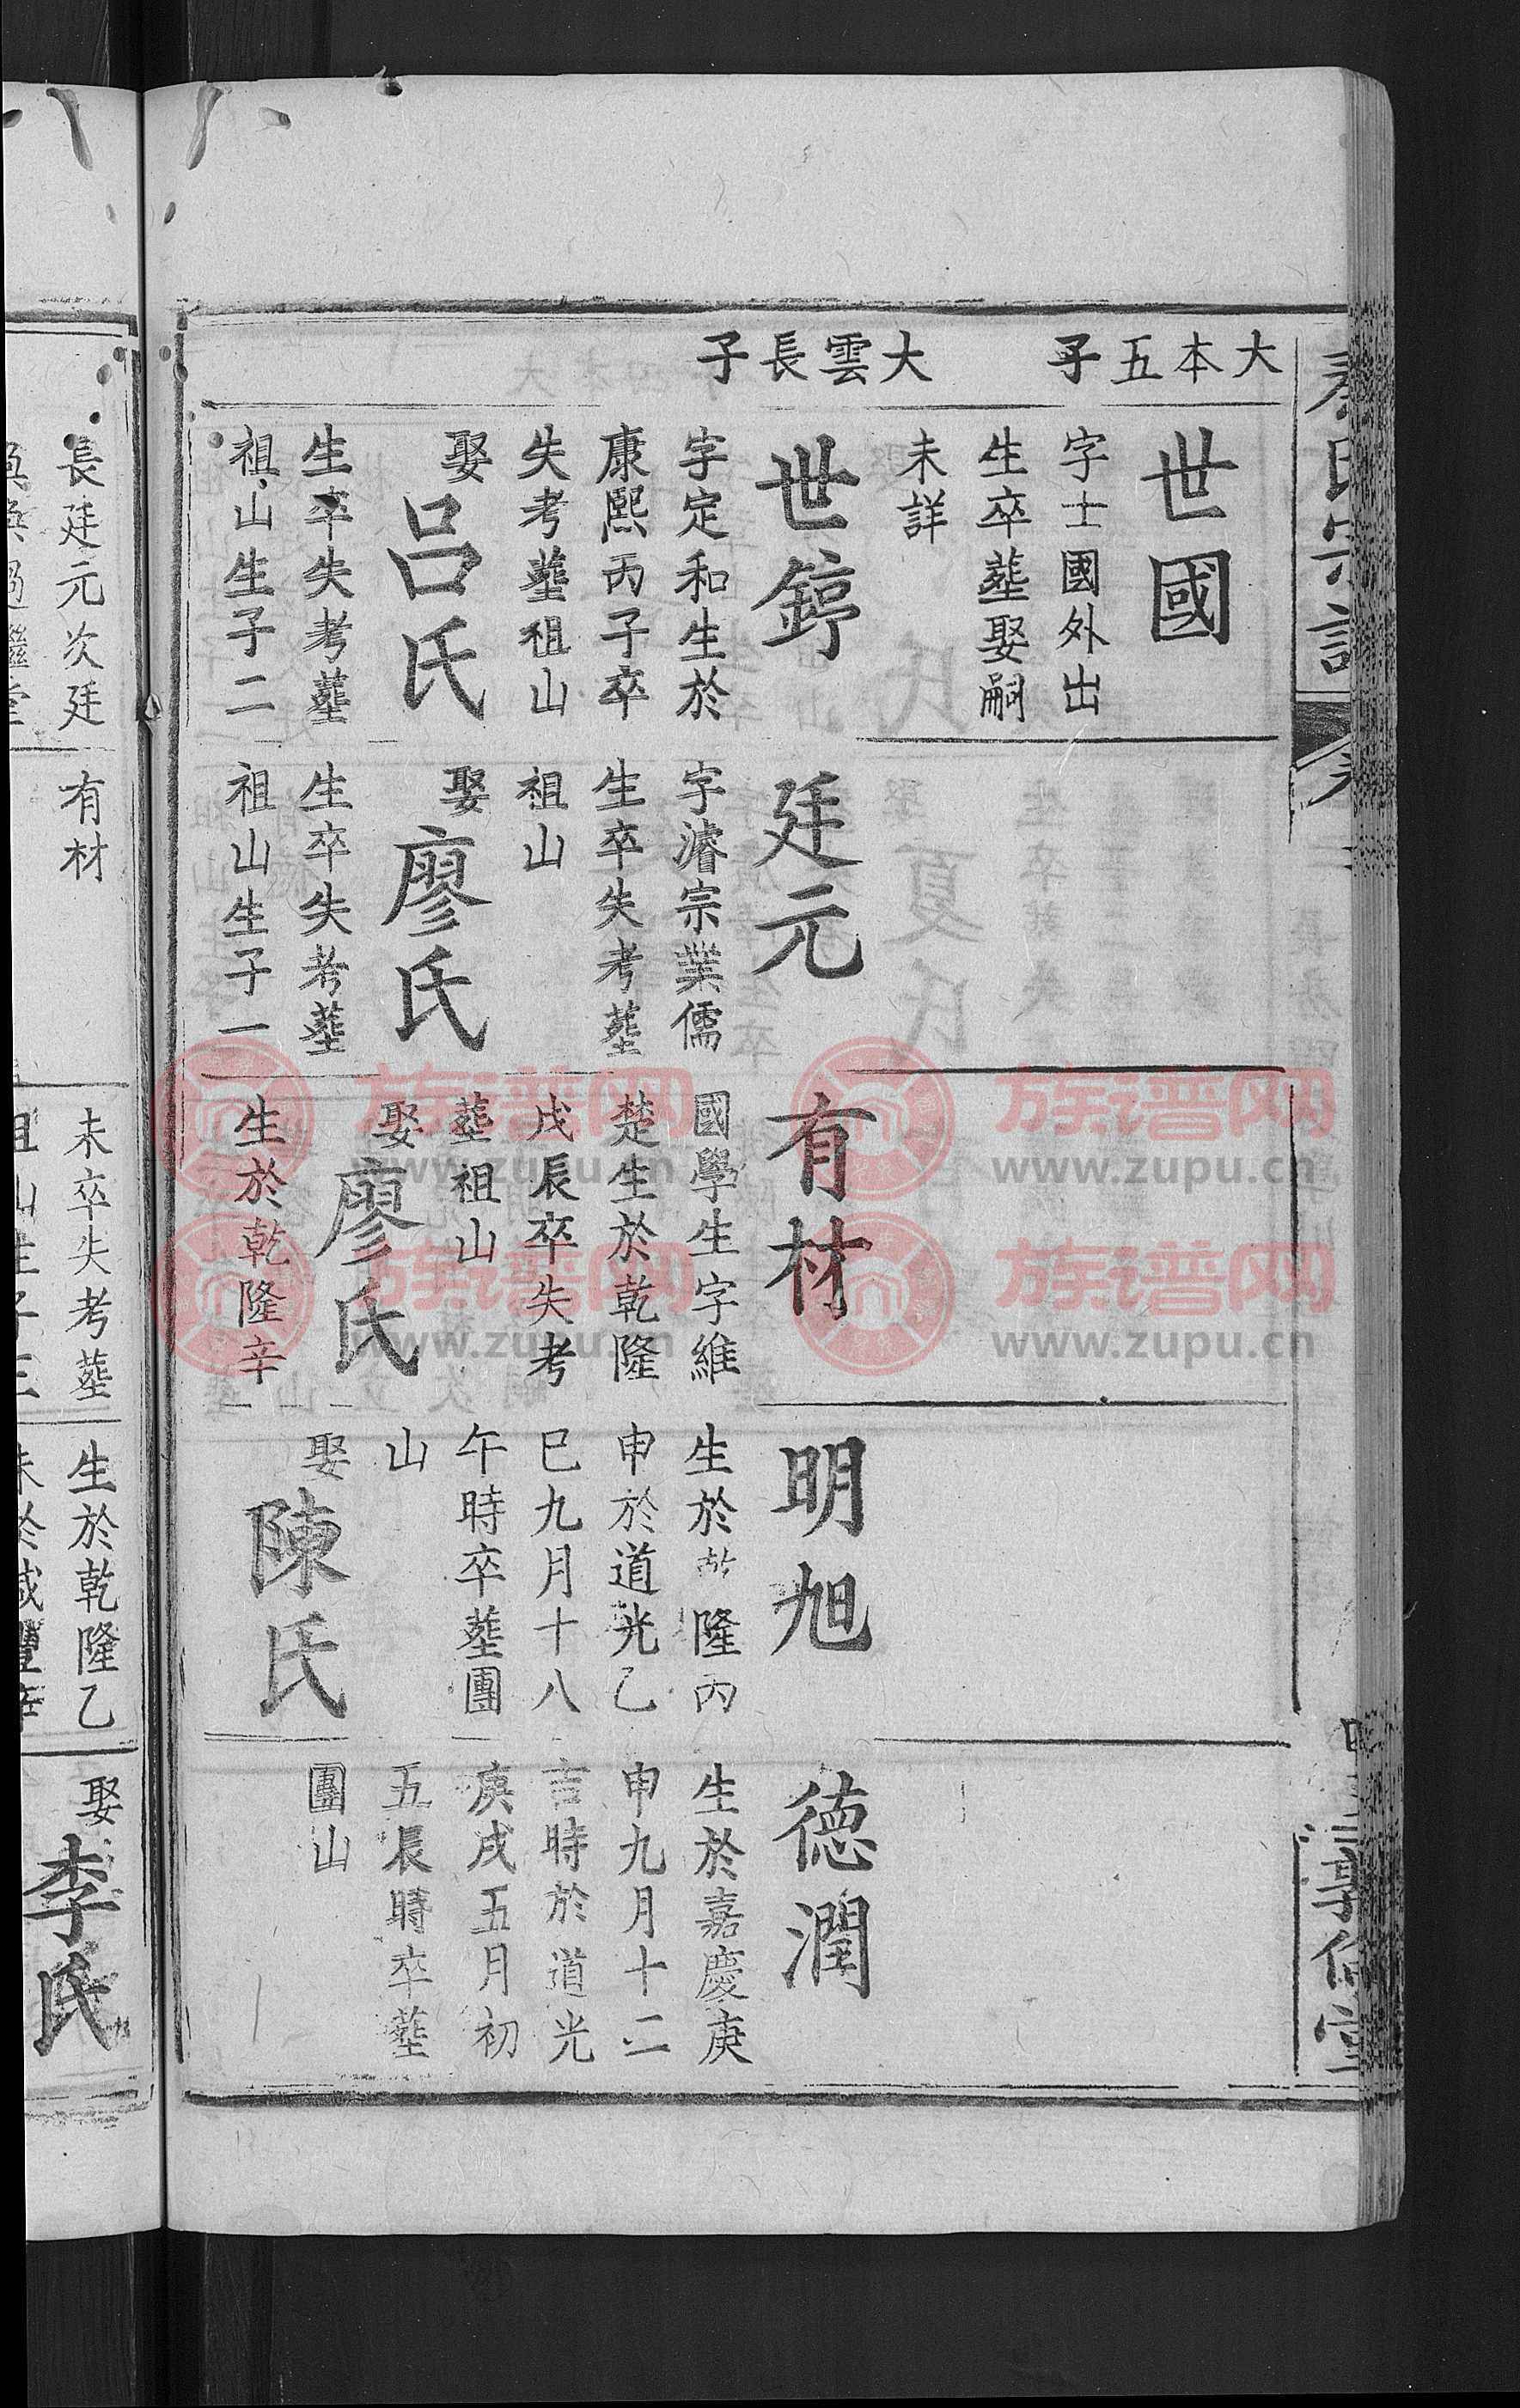 大本五子
世國
字士國外出
生卒塟娶嗣
未詳
大雲長子
世鋍
字定和生於
康熙丙子卒
失考塟祖山
娶呂氏
生卒失考塟
祖山生子二
廷元
字濬宗業儒
生卒失考塟
祖山
娶廖氏
生卒失考塟
祖山生子一
有材
國學生字維
楚生於乾隆
戌辰卒失考
塟祖山
娶廖氏
生於乾隆辛
明旭
生於 隆丙
申於道光乙
巳九月十八
午時卒塟團
山
娶陳氏
德潤
生於嘉慶庚
申九月十二
吉時於道光
庚戌五月初
五辰時卒塟
團山
長廷元次廷
有材
未卒失考塟
生於乾隆乙
娶李氏
族谱网
www.zupu.cn
族谱网
www.zupu.cn
族谱网
www.zupu.cn
族谱网
www.zupu.cn